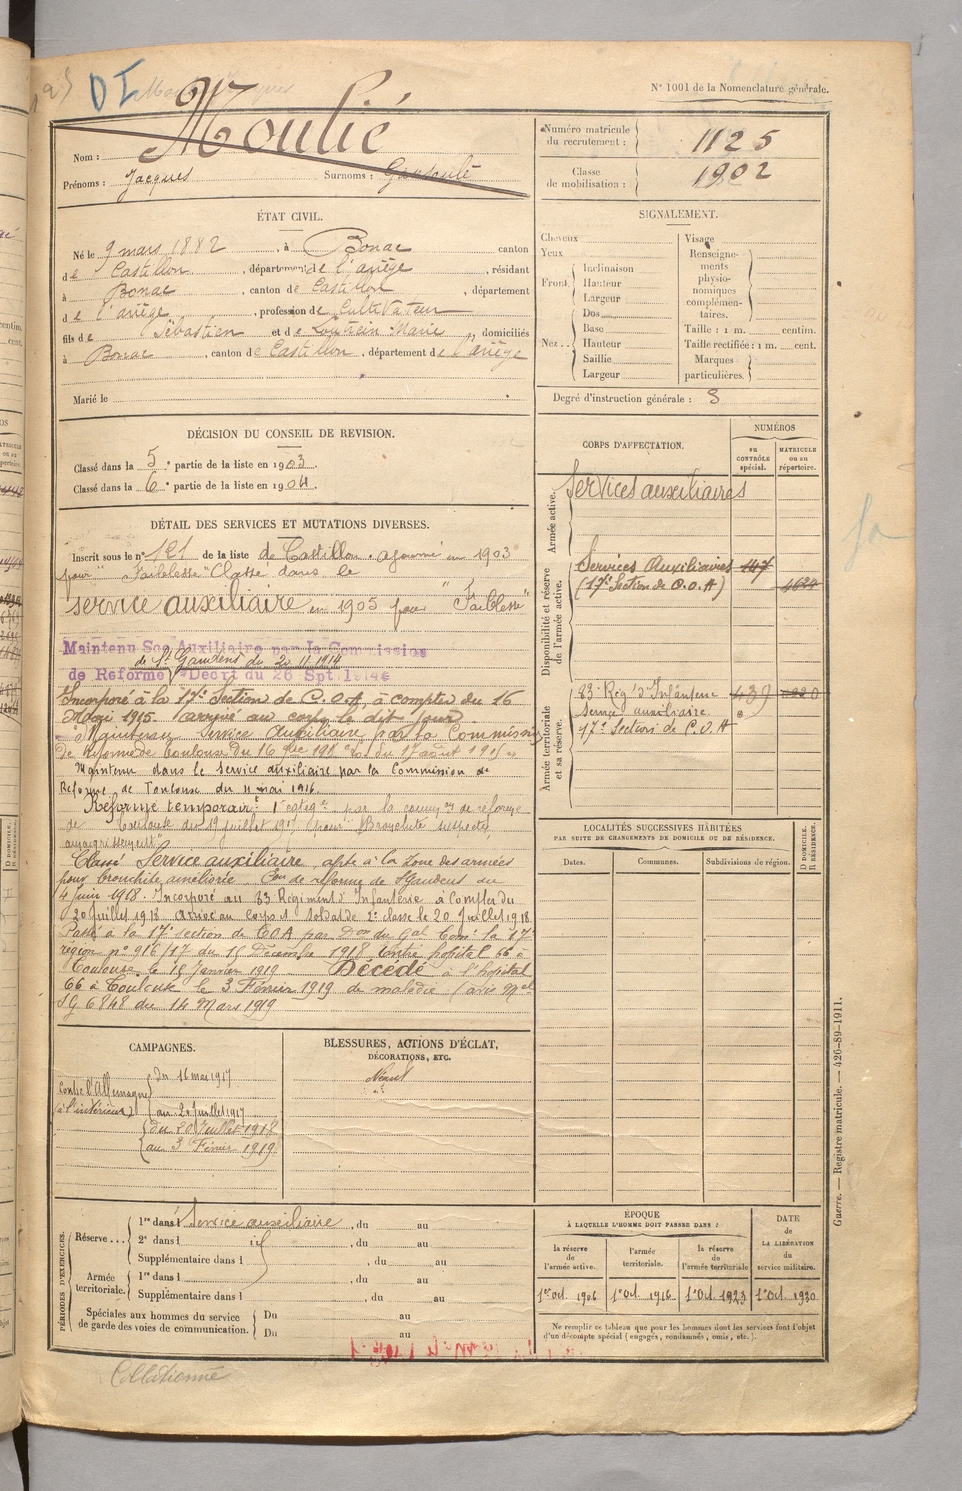 N° 1001 de la Nomenclature générale.
D I
Nom : Moulié
Prénoms : Jacques Surnoms :
Numéro matricule du recrutement : 1125
Classe de mobilisation : 1902
ÉTAT CIVIL.
Né le 9 mars 1882, à Bonac canton
de Castillon, département de l'ariège, résidant
à Bonac, canton de Castillon, département
de l'ariège, profession de Cultivateur
fils de Sébastien et de Marie, domiciliés
à Bonac, canton de Castillon, département de l'ariège
Marié le
SIGNALEMENT.
Cheveux
Yeux
Front Inclinaison
Hauteur
Largeur
Nez Dos
Base
Hauteur
Saillie
Largeur
Visage
Renseignements physionomiques complémentaires.
Taille : 1 m. centim.
Taille rectifiée : 1 m. cent.
Marques particulières.
Degré d'instruction générale : 3
DÉCISION DU CONSEIL DE REVISION.
Classé dans la 5e partie de la liste en 1903.
Classé dans la 6e partie de la liste en 1904.
DÉTAIL DES SERVICES ET MUTATIONS DIVERSES.
Inscrit sous le n° 121 de la liste de Castillon. ajourné en 1903
pour "Faiblesse" Classé dans le
service auxiliaire en 1905 pour "Faiblesse"
Maintenu Sce Auxiliaire par la Commission
de St Gaudens du 20 11 1914
de Reforme Décrt du 26 Spt. 1914
Incorporé à la 17e Section de C.O.A, à compter du 16
Mai 1915. arrivé au corps le dit jour.
Maintenu Service Auxiliaire par la Commission
de Réforme de Toulouse du 16
Maintenu dans le service auxiliaire par la Commission de
Réforme de Toulouse du 11 mai 1916.
Réformé temporair 1e catége par la comm on de réforme
de Toulouse du 19 juillet 1917 pour "Bronchite suspecte,
amaigrissement"
Classé Service auxiliaire, apte à la zone des armées
pour bronchite améliorée. Con de réforme de St Gaudens du
4 Juin 1918. Incorporé au 83 Régiment d'Infanterie à compter du
20 Juillet 1918 arrivé au corps et soldat de 2e classe le 20 Juillet 1918.
Passé à la 17e section de COA par Don du Gal Comt la 17e
région n° 916/17 du 15 Décembre 1918 entré hopital 66 à
Toulouse le 15 Janvier 1919 Décédé à l'hopital
66 à Toulouse le 3 Février 1919 de maladie (avis Mel
SG 6848 du 14 Mars 1919
CORPS D'AFFECTATION.
NUMÉROS
au CONTRÔLE spécial.
MATRICULE ou au répertoire.
Armée active.
Services auxiliaires
Disponibilité et réserve de l'armée active.
Services Auxiliaires 147
(17e Section de C.O.A) 4624
Armée territoriale et sa réserve.
83e Rég' d'Infanterie
Service auxiliaire.
17e Section de C.O.A
LOCALITÉS SUCCESSIVES HABITÉES
PAR SUITE DE CHANGEMENTS DE DOMICILE OU DE RÉSIDENCE.
Dates. Communes. Subdivisions de région.
D DOMICILE. R RÉSIDENCE.
CAMPAGNES.
Contre l'Allemagne
(à l'intérieur)
du 16 mai 1917
au 20 Juillet 1917
du 20 Juillet 1918
au 3 Février 1919
BLESSURES, ACTIONS D'ÉCLAT,
DÉCORATIONS, ETC.
Néant
PÉRIODES D'EXERCICES.
Réserve ... 1re dans l Service auxiliaire, du au
2e dans l id, du au
Supplémentaire dans l, du au
Armée territoriale. 1re dans l, du au
Supplémentaire dans l, du au
Spéciales aux hommes du service de garde des voies de communication. Du au
Du au
ÉPOQUE
À LAQUELLE L'HOMME DOIT PASSER DANS :
la réserve de l'armée active.
l'armée territoriale.
la réserve de l'armée territoriale
DATE de LA LIBÉRATION du service militaire.
1er Oct. 1906 1er Oct. 1916 1er Oct. 1923 1er Oct. 1930
Ne remplir ce tableau que pour les hommes dont les services font l'objet
d'un décompte spécial (engagés, condamnés, omis, etc.).
Guerre. — Registre matricule. — 426-89-1911.
Collationné